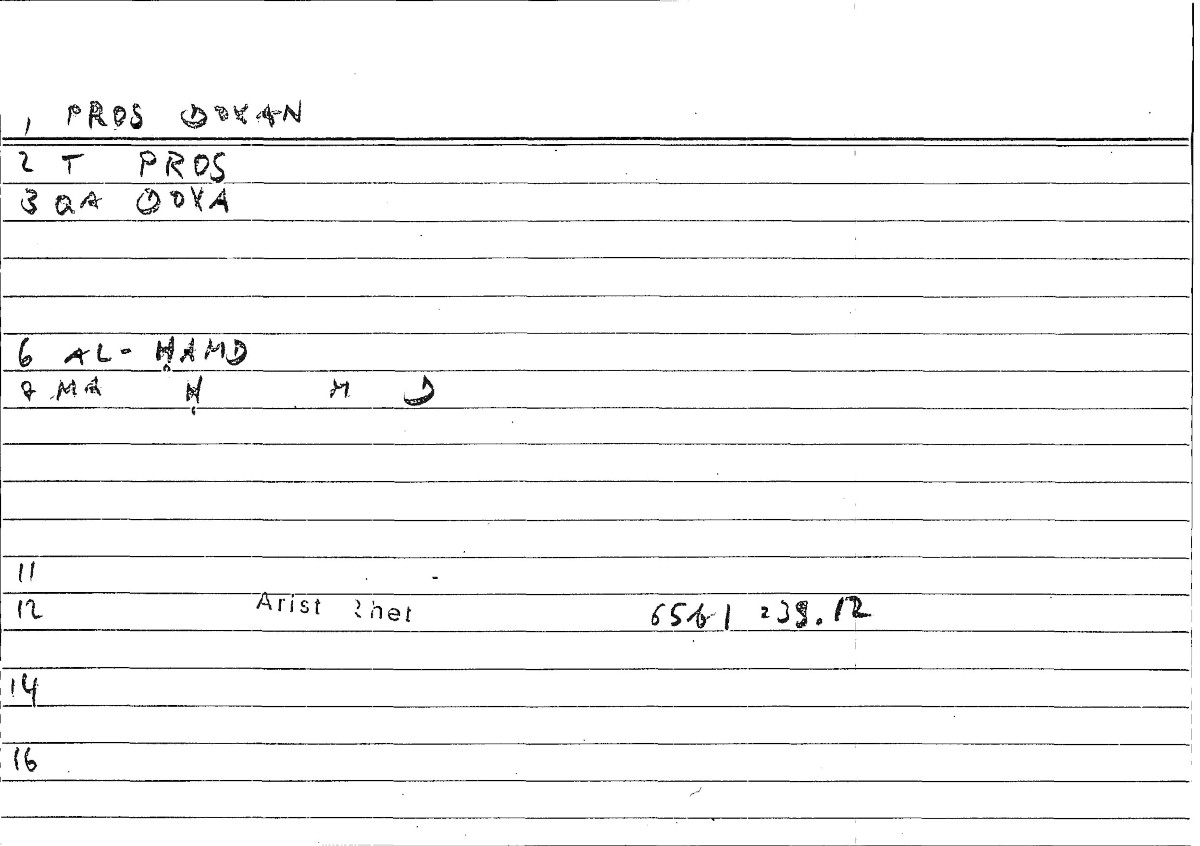 1 PROS DOXAN
2 T PROS
3 QA DOXA
6 AL-ḤAMD
7 MA Ḥ M D
11
12 Arist Rhet 65b1 39.12
14
16